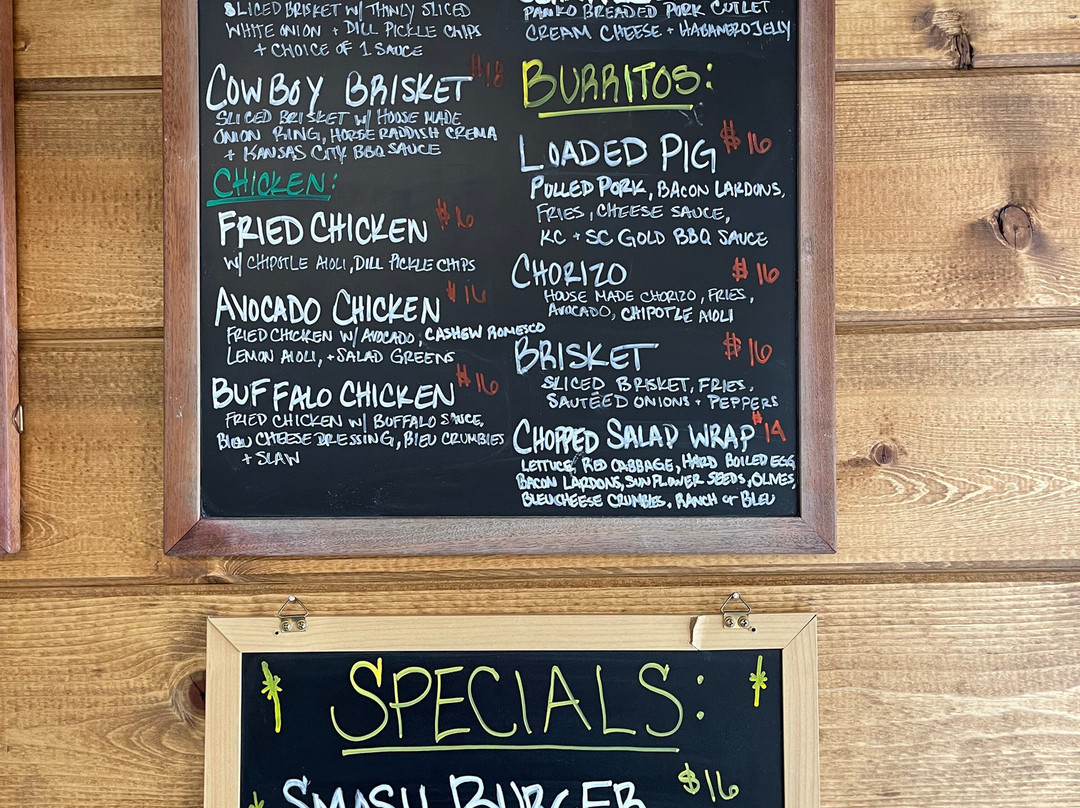 SLICED BRISKET W/ THINLY SLICED
WHITE ONION + DILL PICKLE CHIPS
+ CHOICE OF 1 SAUCE
COWBOY BRISKET $18
SLICED BRISKET W/ HOUSE MADE
ONION RING, HORSE RADDISH CREMA
+ KANSAS CITY BBQ SAUCE
CHICKEN:
FRIED CHICKEN $16
W/ CHIPOTLE AIOLI, DILL PICKLE CHIPS
AVOCADO CHICKEN $16
FRIED CHICKEN W/ AVOCADO, CASHEW ROMESCO
LEMON AIOLI, + SALAD GREENS
BUFFALO CHICKEN $16
FRIED CHICKEN W/ BUFFALO SAUCE,
BLEU CHEESE DRESSING, BLEU CRUMBLES
+ SLAW
PANKO BREADED PORK CUTLET
CREAM CHEESE + HABANERO JELLY
BURRITOS:
LOADED PIG $16
PULLED PORK, BACON LARDONS,
FRIES, CHEESE SAUCE,
KC + SC GOLD BBQ SAUCE
CHORIZO $16
HOUSE MADE CHORIZO, FRIES,
AVOCADO, CHIPOTLE AIOLI
BRISKET $16
SLICED BRISKET, FRIES,
SAUTÉED ONIONS + PEPPERS
CHOPPED SALAD WRAP $14
LETTUCE, RED CABBAGE, HARD BOILED EGG
BACON LARDONS, SUNFLOWER SEEDS, OLIVES,
BLEUCHEESE CRUMBLES, RANCH OR BLEU
SPECIALS:
SMASH BURGER $16